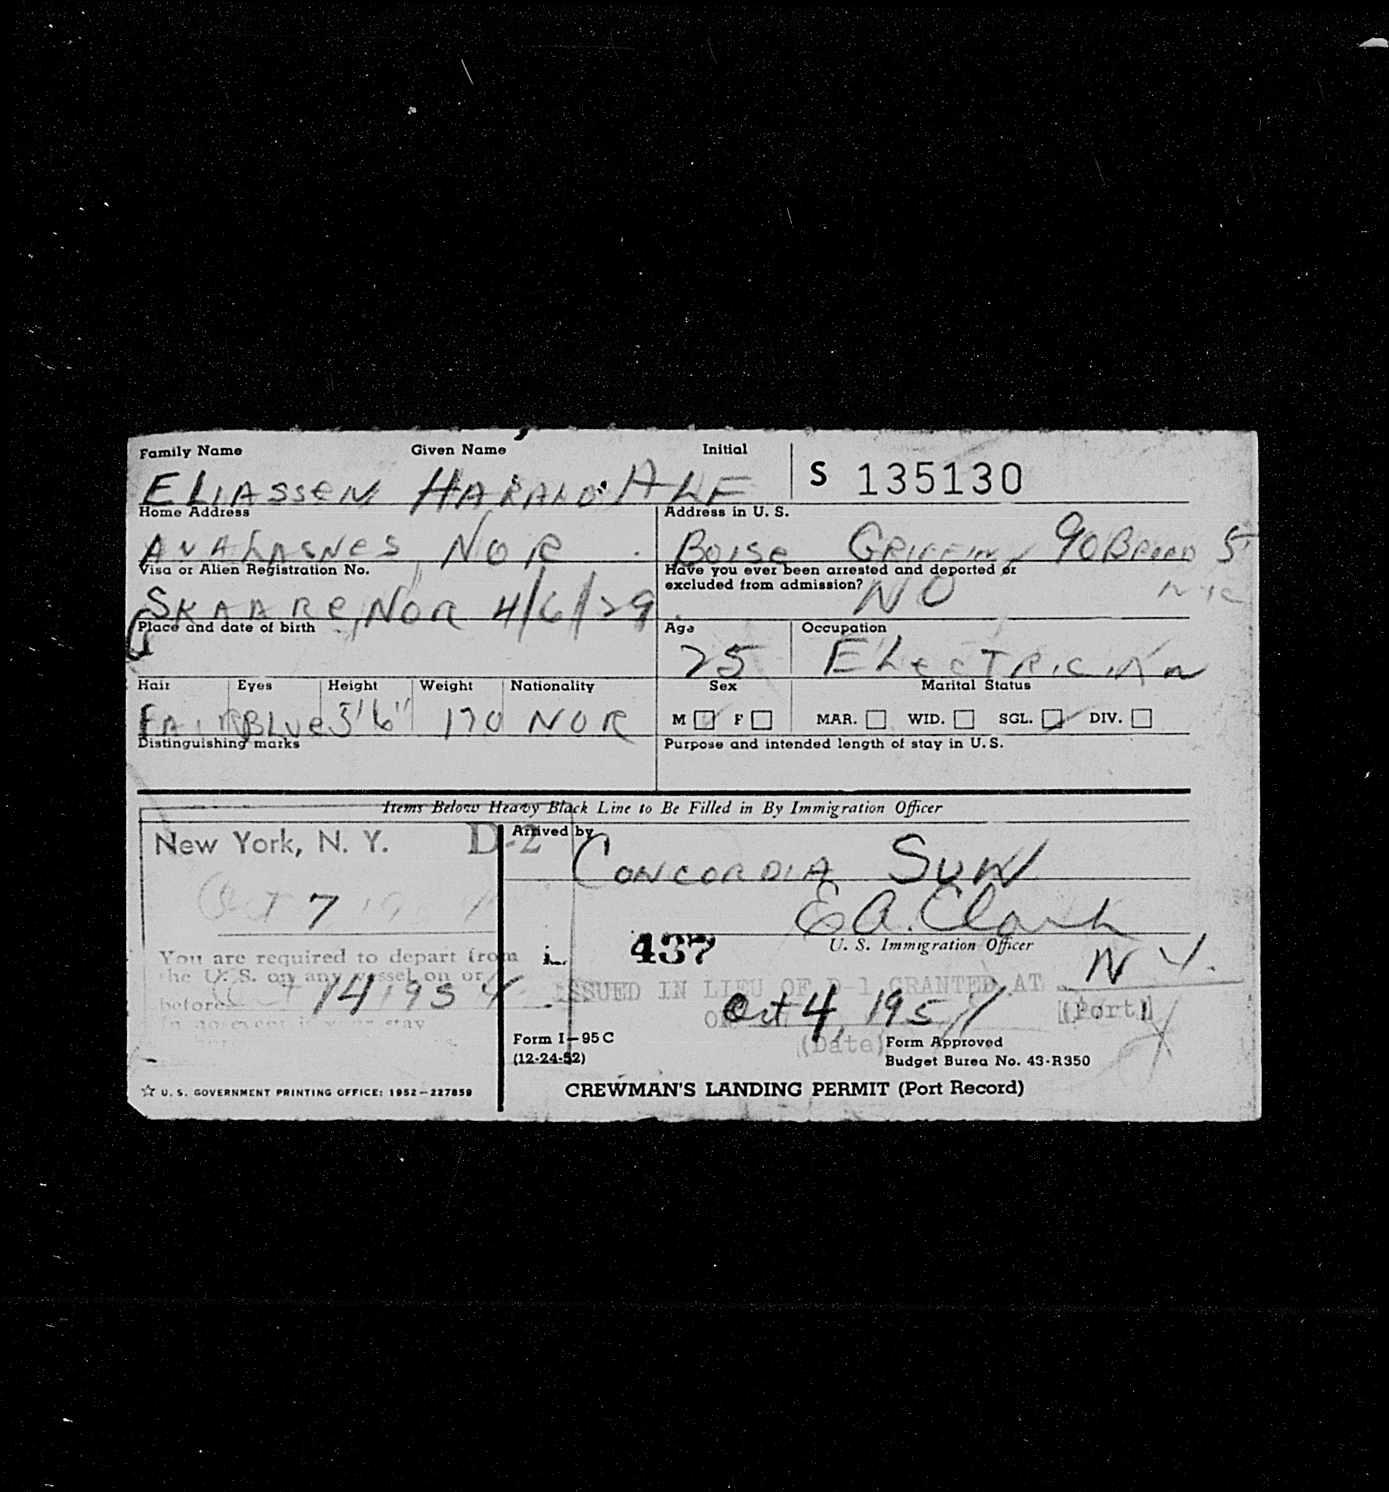 Family Name Given Name Initial
ELIASSEN HARALD ALF S 135130
Home Address Address in U. S.
NOR BOISE GRIFFIN 90 BROAD ST
NYC
Visa or Alien Registration No. Have you ever been arrested and deported or
excluded from admission? NO
SKAARE, NOR 4/6/29
Place and date of birth Age Occupation
25 ELECTRICIAN
Hair Eyes Height Weight Nationality Sex Marital Status
FAIR BLUE 5'6" 170 NOR M F MAR. WID. SGL. DIV.
Distinguishing marks Purpose and intended length of stay in U.S.
Items Below Heavy Black Line to Be Filled in By Immigration Officer
New York, N. Y. D-2 Arrived by
CONCORDIA SUN
Oct 7
E A. Clark
You are required to depart from 437 U. S. Immigration Officer
the U. S. on any vessel on or N Y.
before Oct 14 1954 ISSUED IN LIEU OF D-1 GRANTED AT (Port)
In no event is your stay ON Oct 4, 1954
(Date)
Form I-95C Form Approved
(12-24-52) Budget Burea No. 43-R350
☆ U. S. GOVERNMENT PRINTING OFFICE: 1952-227859 CREWMAN'S LANDING PERMIT (Port Record)